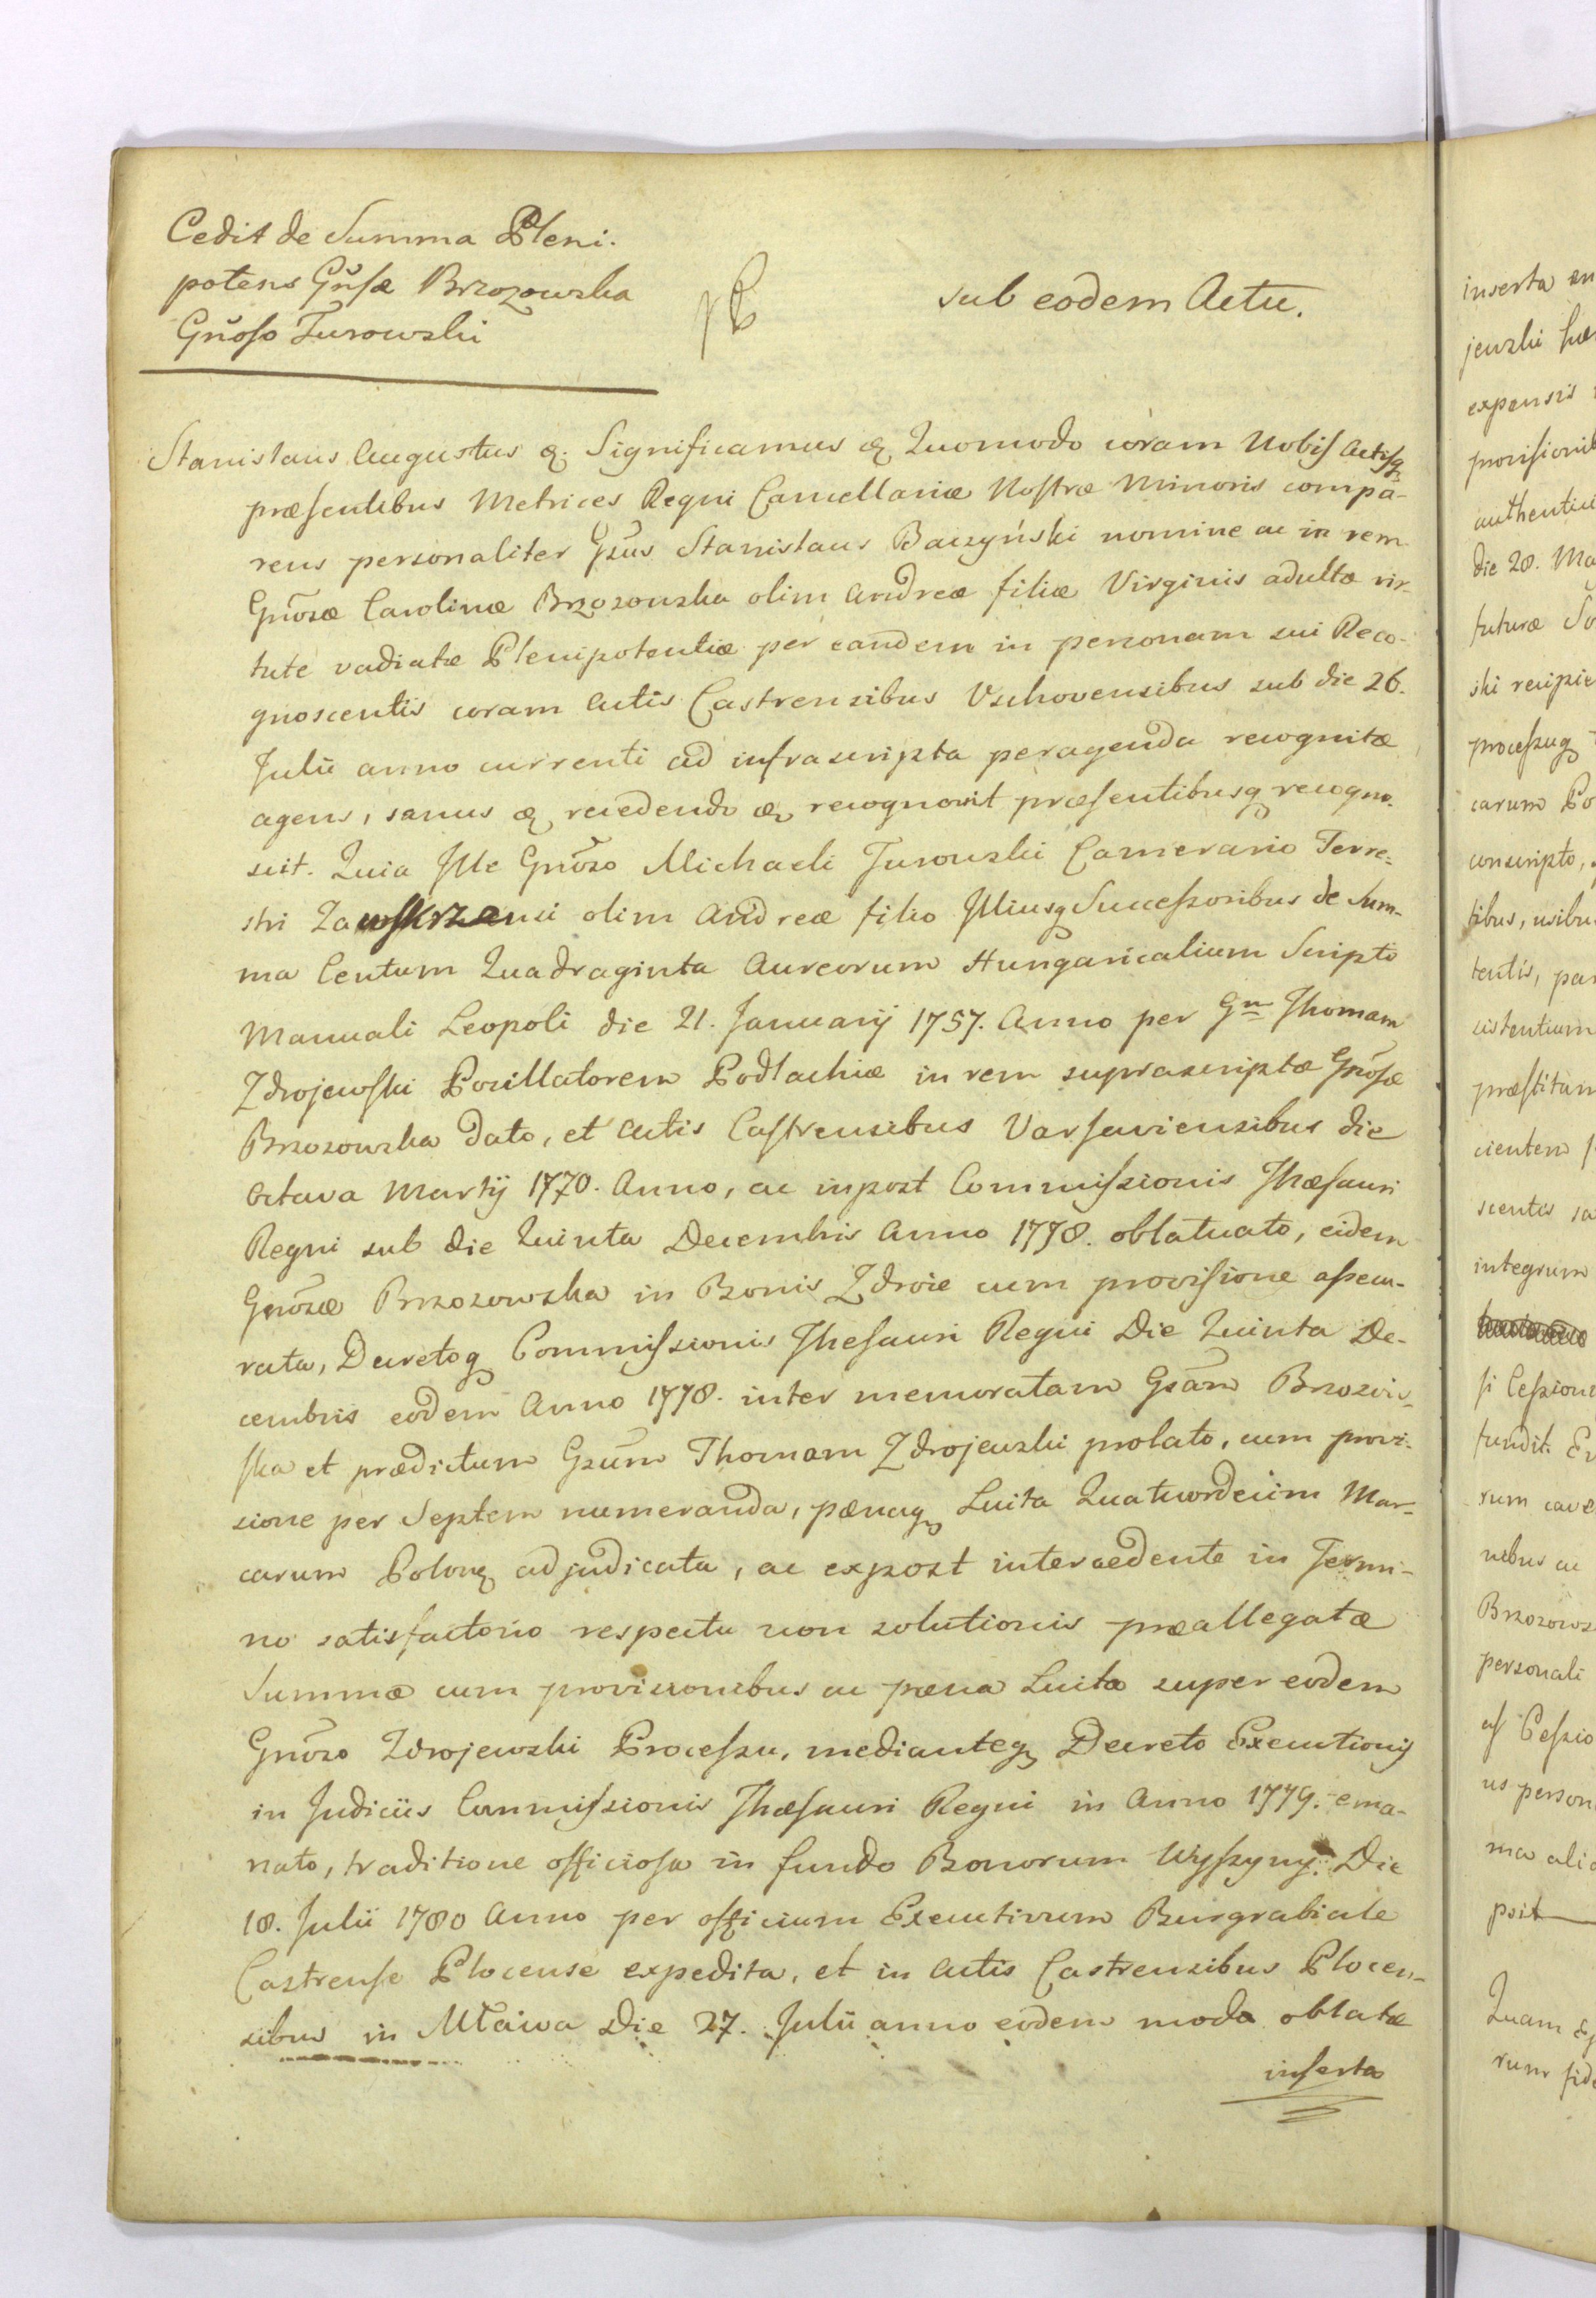 Cedit de Summa Pleni-
potens Gnsæ Brzozowska
Gnoso Turowski
sub eodem Actu.
Stanislaus Augustus &. Significamus & Quomodo coram Nobis Actisq
præsentibus Metrices Regni Cancellariæ Nostræ Minoris compa-
rens personaliter Gsus Stanislaus Baczyński nomine ac in rem
Gnosæ Carolinæ Brzozowska olim Andreæ filiæ Virginis adultæ vir-
tute vadiatæ Plenipotentiæ per eandem in personam sui Reco-
gnoscentis coram Actis Castrensibus Vschovensibus sub die 26.
Julii anno currenti ad infrascripta peragenda recognitæ
agens, sanus & recedendo & recognovit præsentibusq recogno-
scit. Quia Ille Gnoso Michaeli Turowski Camerario Terre-
stri Zawskrzensi olim Andreæ filio Illiusq Successoribus de Sum-
ma Centum Quadraginta Aureorum Hungaricalium Scripto
Manuali Leopoli die 21. Januarij 1757. Anno per Gnm Thomam
Zdrojewski Pocillatorem Podlachiæ in rem suprascriptæ Gnosæ
Brzozowska dato, et Actis Castrensibus Varsaviensibus die
Octava Martij 1770. Anno, ac inpost Commissionis Thæsauri
Regni sub die Quinta Decembris Anno 1778. oblatuato, eidem
Gnosæ Brzozowska in Bonis Zdroie cum provisione assecu-
rata, Decretoq Commissionis Thesauri Regni Die Quinta De-
cembris eodem Anno 1778. inter memoratam Gsam Brzozow-
ska et prædictum Gsum Thomam Zdrojewski prolato, cum provi-
sione per Septem numeranda, pænaq Luita Quatuordecim Mar-
carum Polonq adjudicata, ac expost intercedente in Termi-
no satisfactorio respectu non solutionis præallegatæ
Summæ cum provisionibus ac pæna Luita super eodem
Gnoso Zdrojewski Processu, medianteq Decreto Executionis
in Judiciis Commissionis Thæsauri Regni in Anno 1779. ema-
nato, traditione officiosa in fundo Bonorum Wyszyny. Die
18. Julii 1780 Anno per officium Executivum Burgrabiale
Castrense Plocense expedita, et in Actis Castrensibus Plocen-
sibus in Mława Die 27. Julii anno eodem modo oblatæ
inserta
inserta
expensis
die 28. Ma
futuræ
carum Po
conscripto,
tibus, usibu
integrum
Brzozows
personali
us person
ma ali
psit
Quam
rum fide